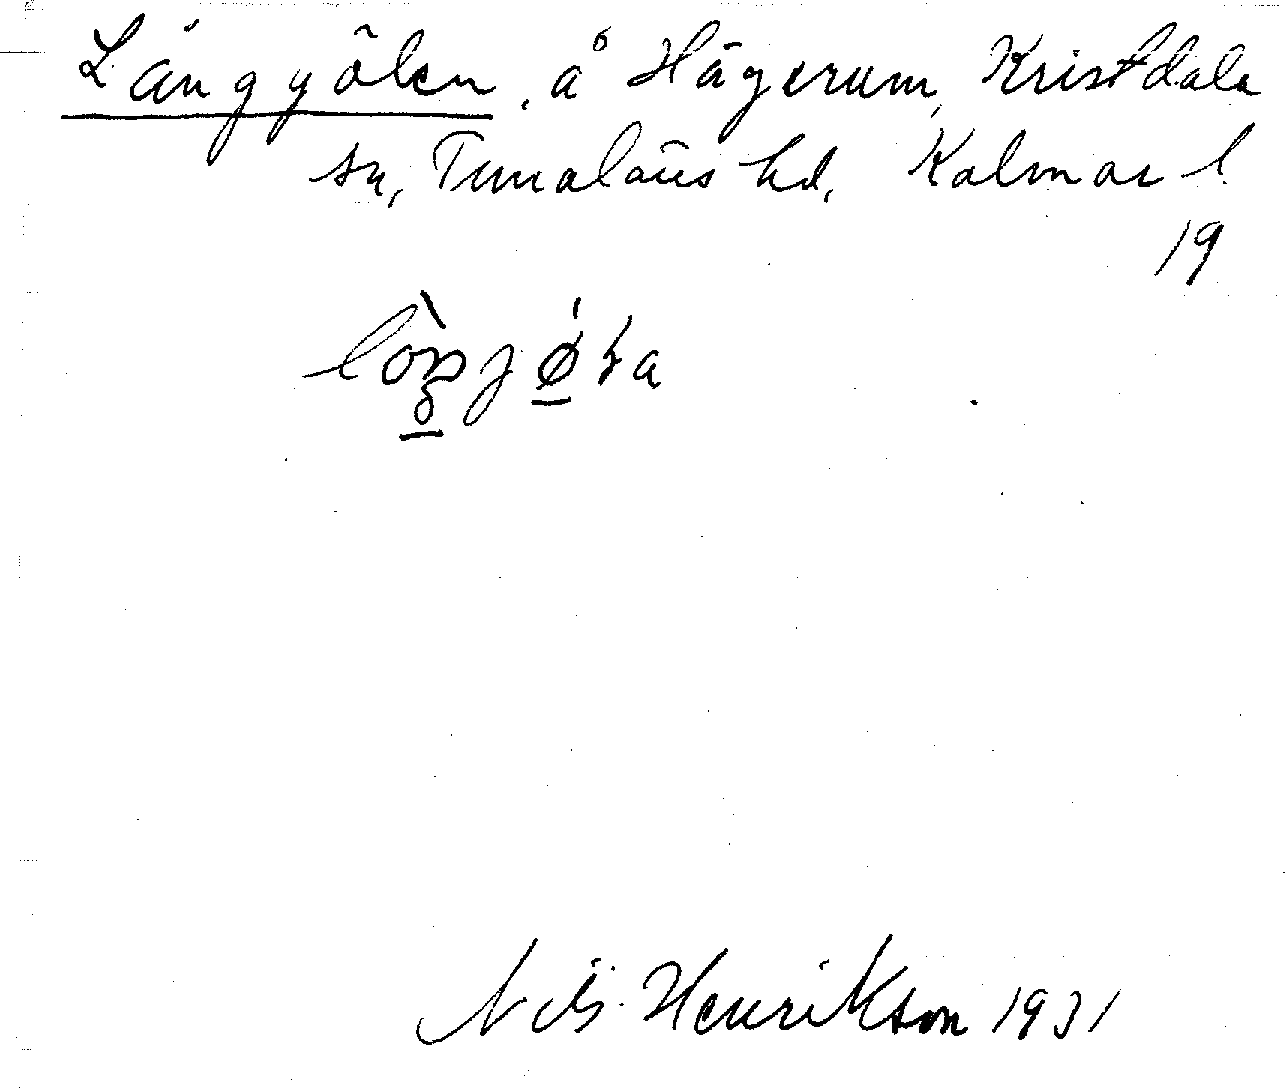 Långgölen, å Hägerum, Kristdala
sn, Tunaläns hd, Kalmar l
19
Nils Henrikson 1931